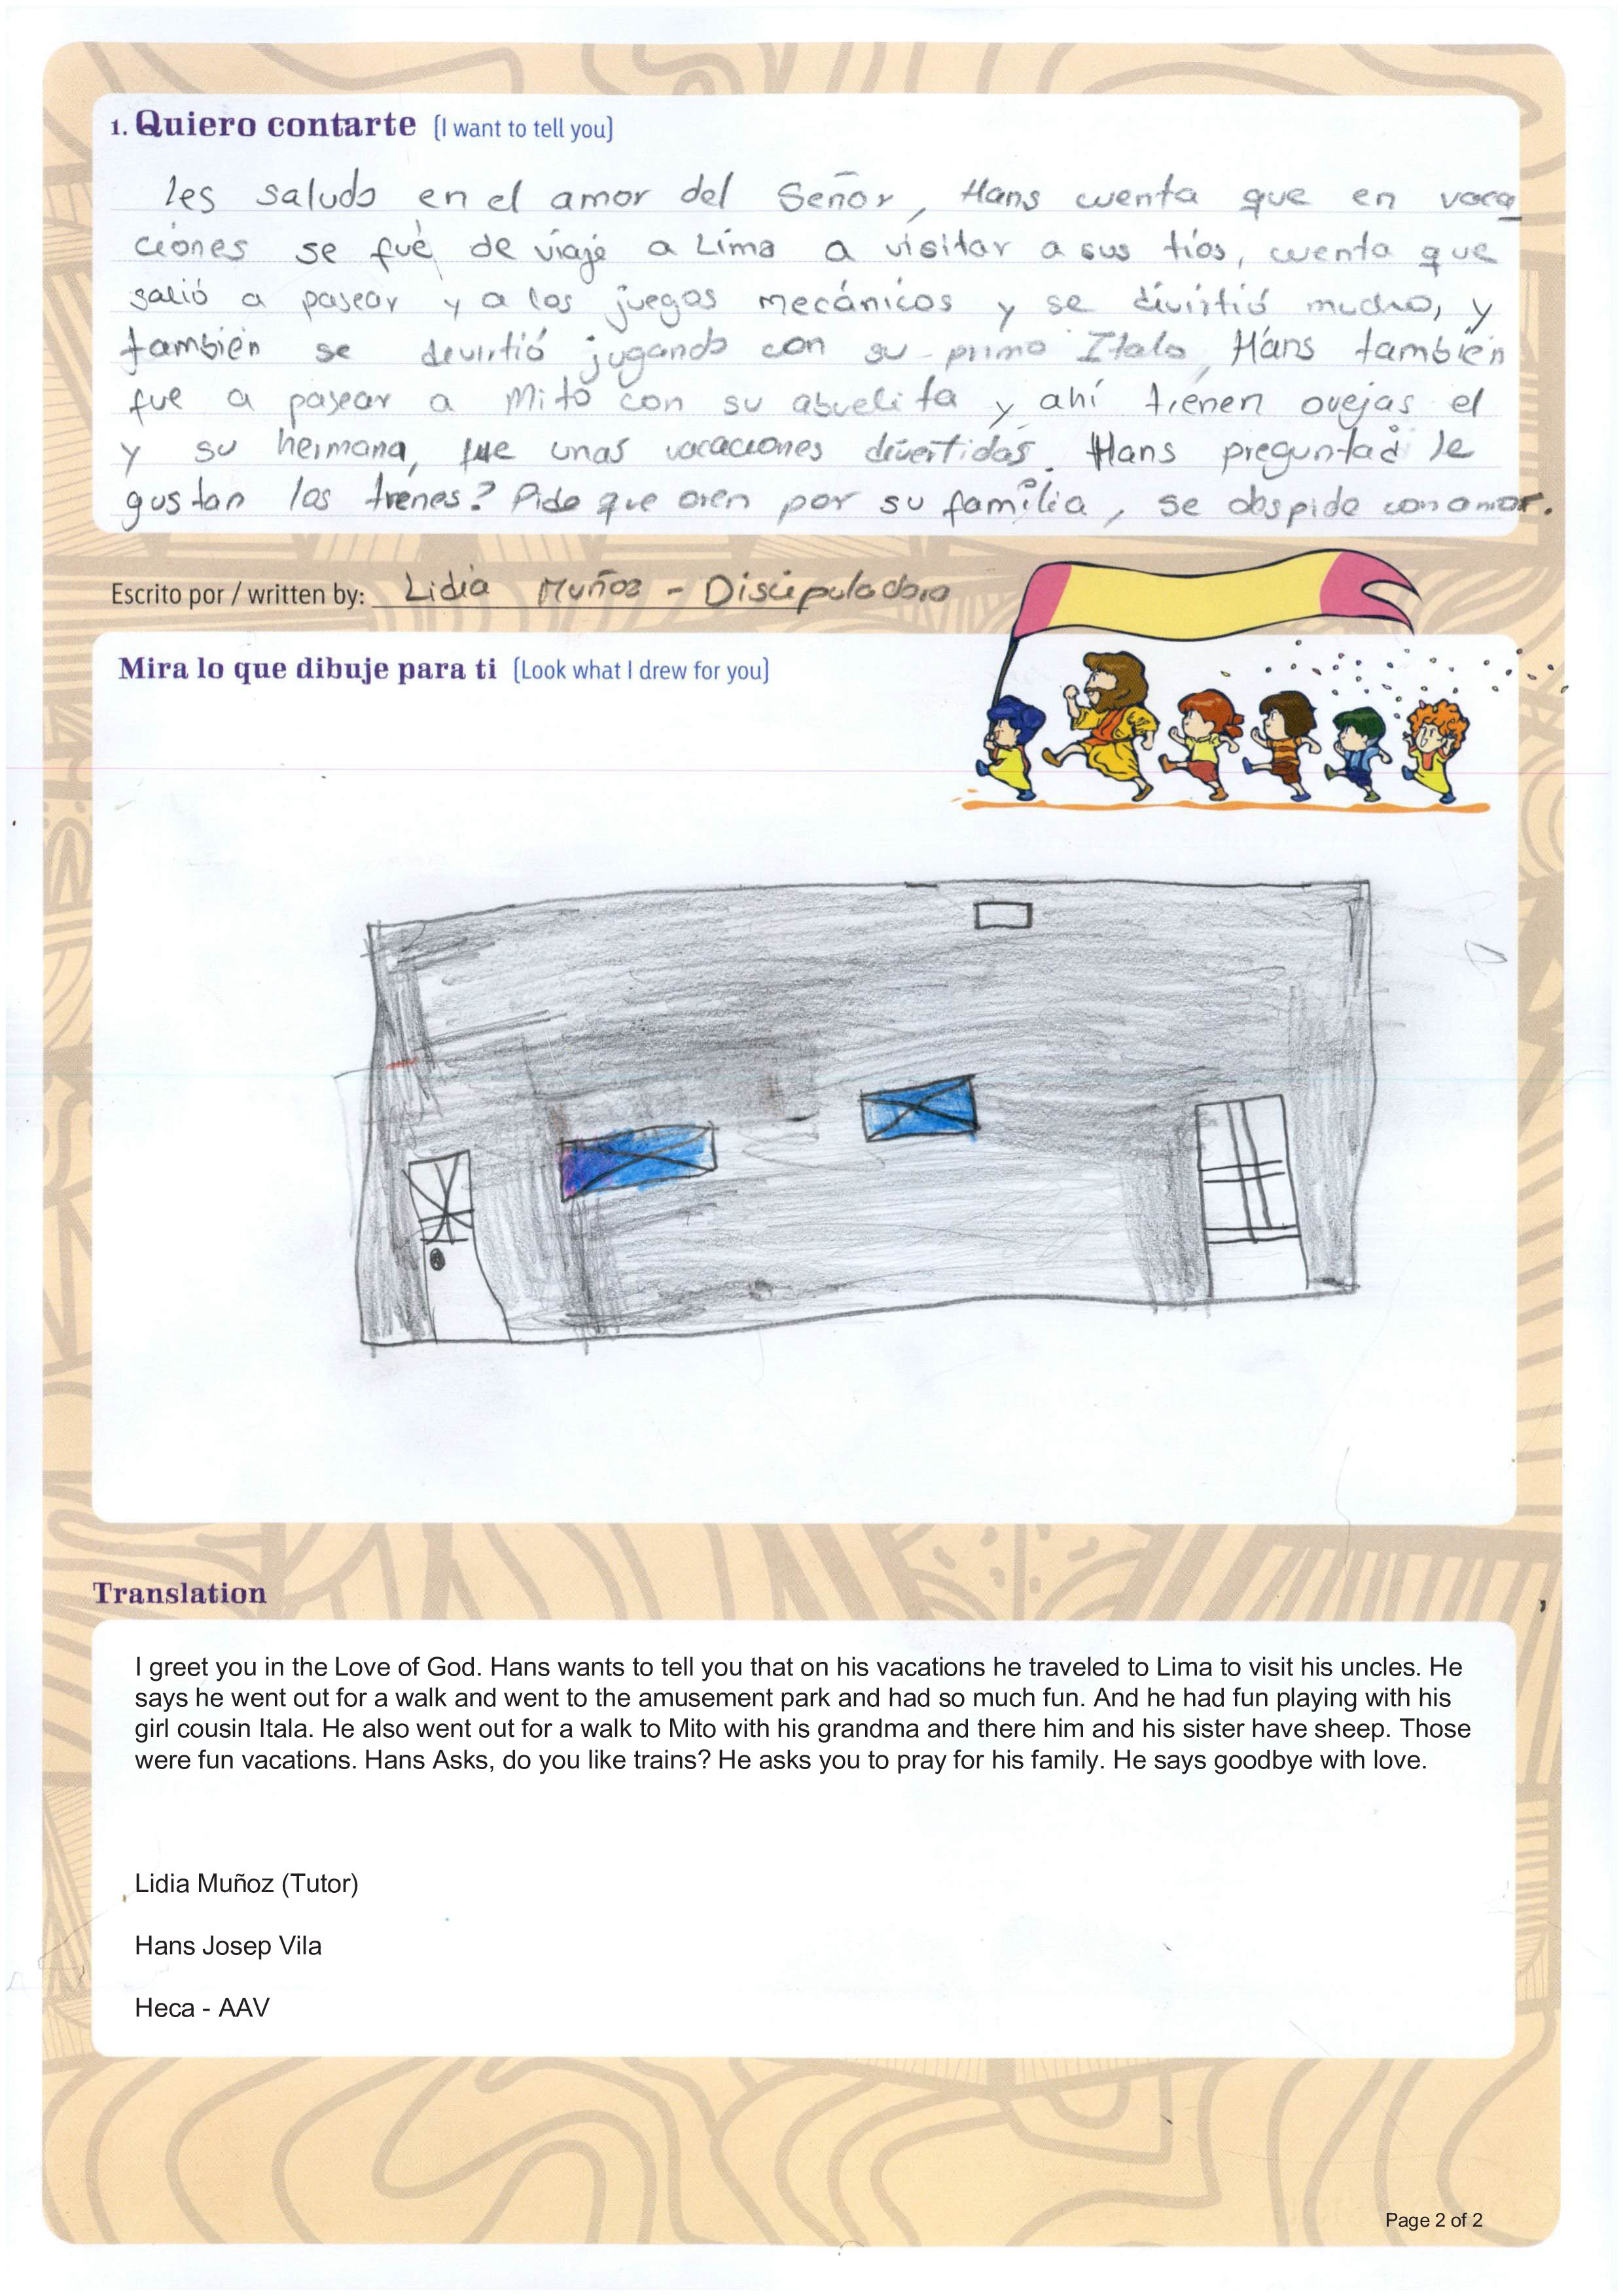 1. Quiero contarte (I want to tell you)
les saludo en el amor del Señor, Hans cuenta que en vaca
ciones se fué de viaje a Lima a visitar a sus tíos, cuenta que
salió a pasear y a los juegos mecánicos y se divirtió mucho, y
también se devirtió jugando con su primo Italo, Hans también
fue a pasear a Mito con su abuelita y ahí tienen ovejas el
y su hermana, fue unas vacaciones divertidas. Hans pregunta¿ le
gustan los trenes? Pide que oren por su familia, se despide con amor.
Escrito por / written by: Lidia Muñoz - Discipuladora
Mira lo que dibuje para ti (Look what I drew for you)
Translation
I greet you in the Love of God. Hans wants to tell you that on his vacations he traveled to Lima to visit his uncles. He
says he went out for a walk and went to the amusement park and had so much fun. And he had fun playing with his
girl cousin Itala. He also went out for a walk to Mito with his grandma and there him and his sister have sheep. Those
were fun vacations. Hans Asks, do you like trains? He asks you to pray for his family. He says goodbye with love.
Lidia Muñoz (Tutor)
Hans Josep Vila
Heca - AAV
Page 2 of 2